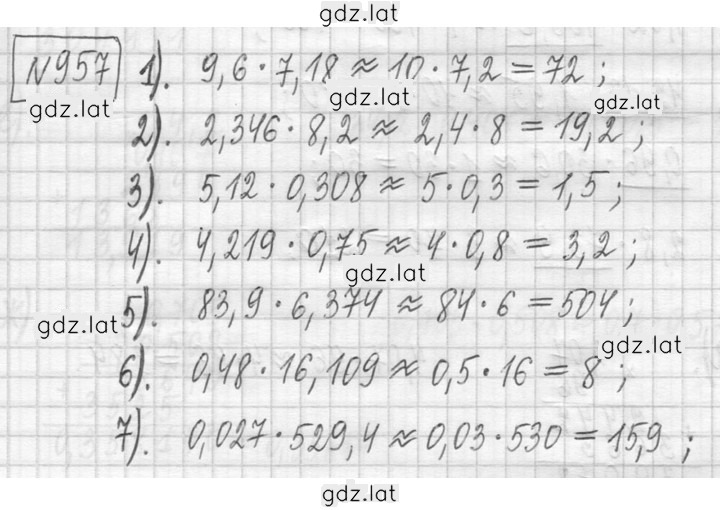 gdz.lat
N957 1). 9,6 · 7,18 ≈ 10 · 7,2 = 72 ;
gdz.lat gdz.lat gdz.lat
2). 2,346 · 8,2 ≈ 2,4 · 8 = 19,2 ;
3). 5,12 · 0,308 ≈ 5 · 0,3 = 1,5 ;
4). 4,219 · 0,75 ≈ 4 · 0,8 = 3,2 ;
gdz.lat
5). 83,9 · 6,374 ≈ 84 · 6 = 504 ;
gdz.lat
gdz.lat
6). 0,48 · 16,109 ≈ 0,5 · 16 = 8 ;
7). 0,027 · 529,4 ≈ 0,03 · 530 = 15,9 ;
gdz.lat